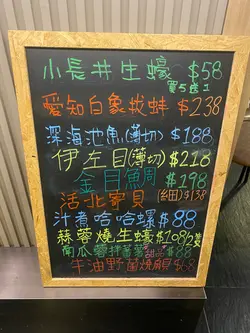 小長井生蠔 $58
買5送1
愛知白象拔蚌 $238
深海池魚(薄切) $188
伊左目(薄切) $218
金目魚周 $198
活北寄貝 (細田) $138
汁煮哈哈螺 $88
蒜蓉燒生蠔 $108/2隻
南瓜蓉拌蕃薯 甜品 $88
牛油野菌燒 $68